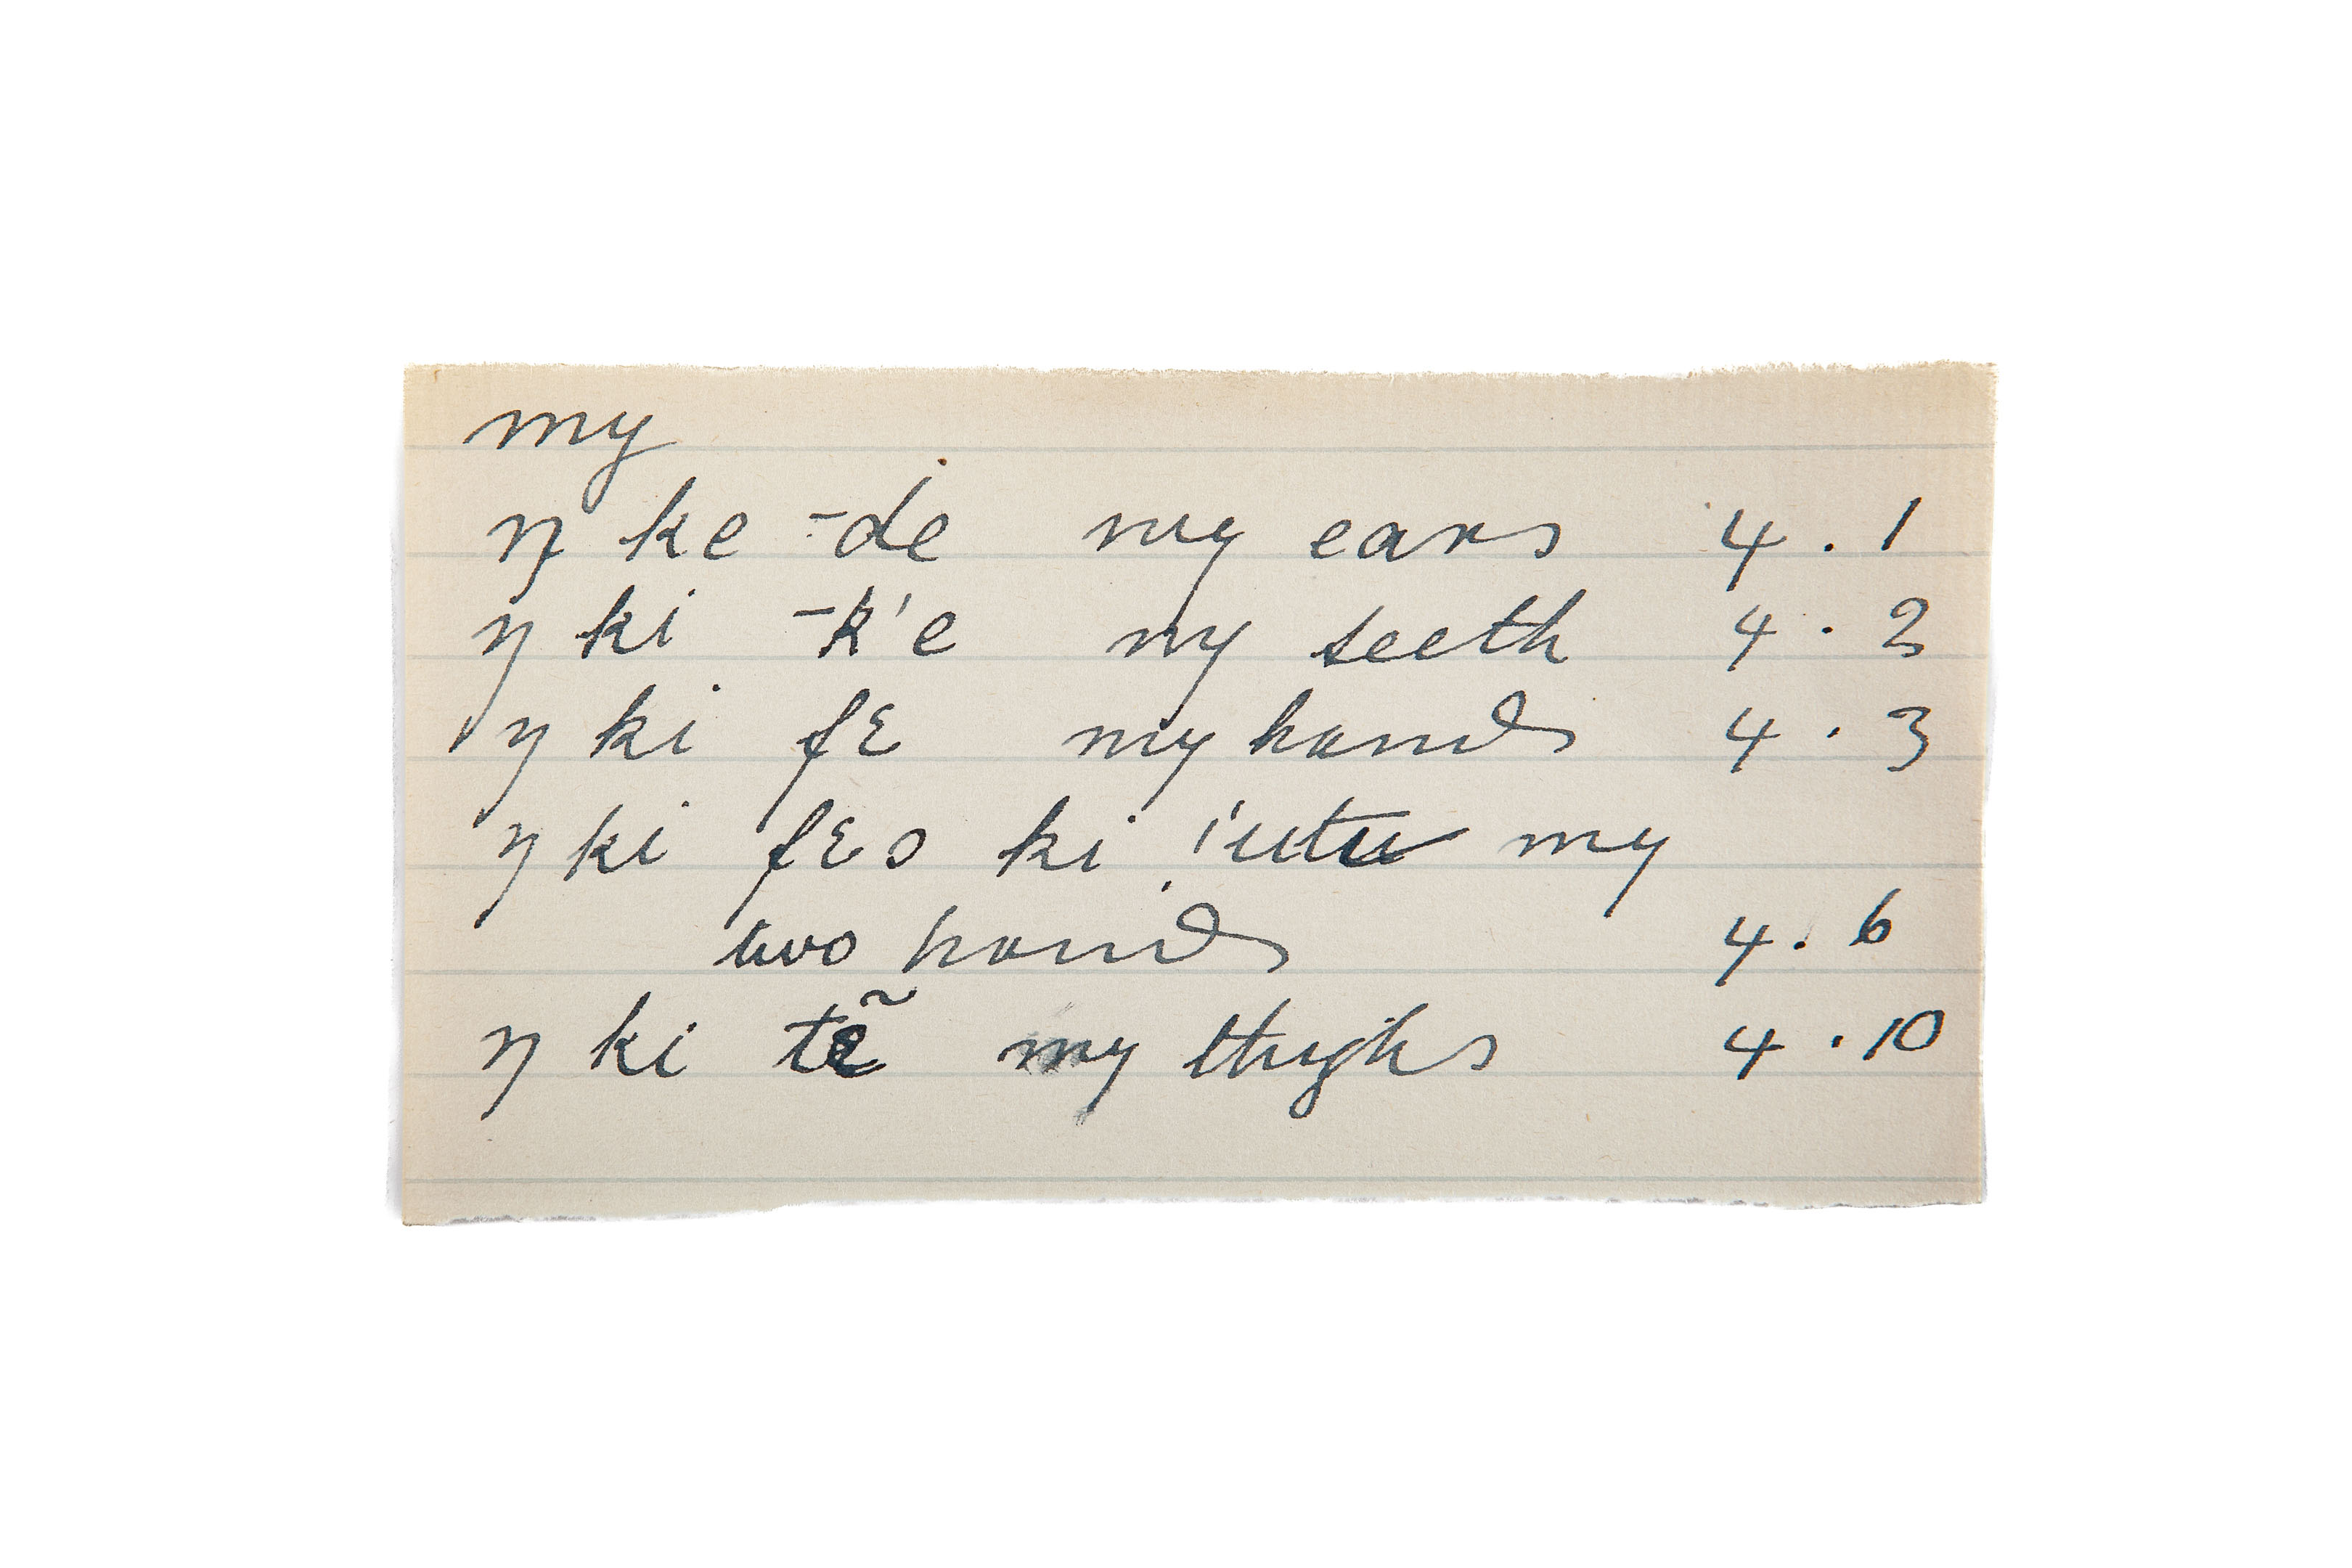 my
ŋ ke -de my ears 4 . 1
ŋ ki -k'e my teeth 4 . 2
ŋ ki fɛ my hands 4 . 3
ŋ ki fɛs ki 'utu my
two hands 4 . 6
ŋ ki tẽ my thighs 4 . 10